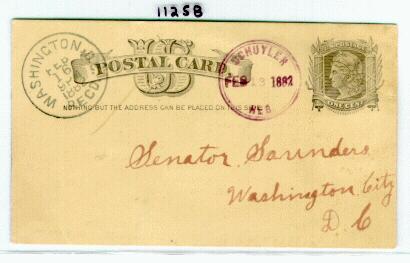 1125B
WASHINGTON
REC'D
POSTAL CARD
U.S. POSTAGE
ONE CENT
SCHUYLER
FEB 13 1882
NEB
NOTHING BUT THE ADDRESS CAN BE PLACED ON THIS SIDE
Senator Saunders
Washington City
D. C